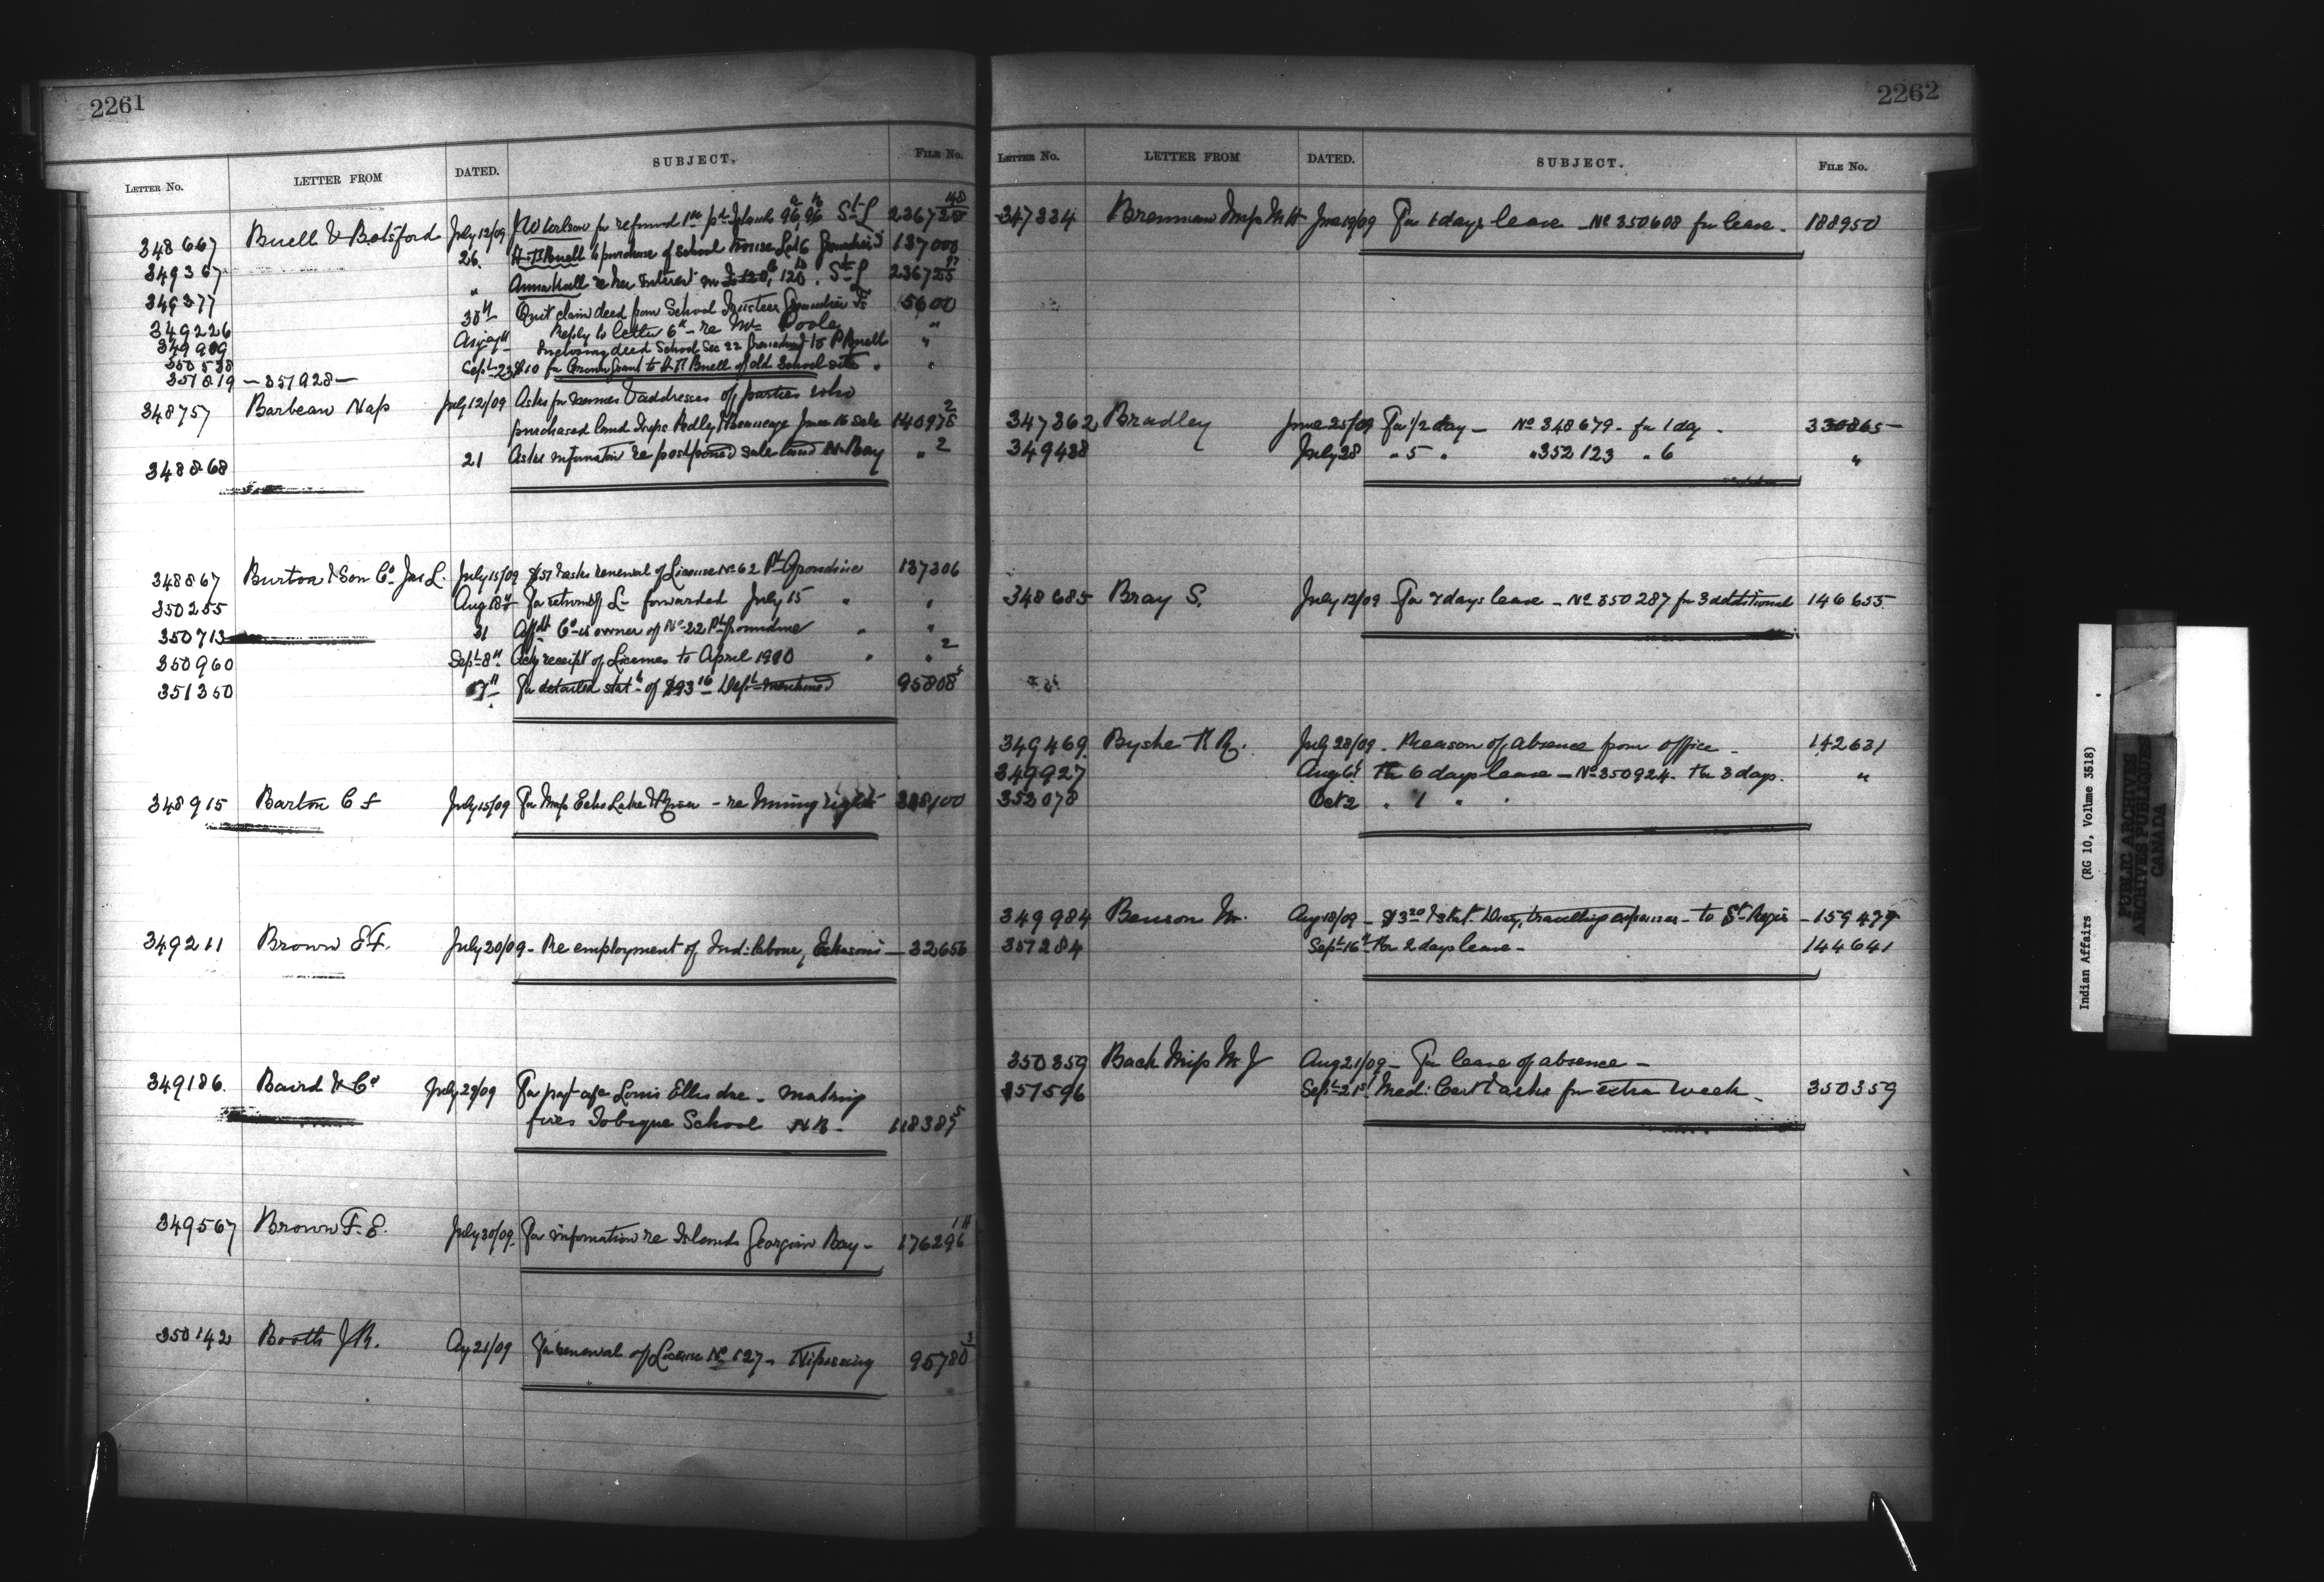 2261
LETTER No. LETTER FROM DATED. SUBJECT. FILE No.
348667 Buell & Botsford July 12/09 for refund 1st Island 96, 96 St L 23672
349367 26 H. T. Buell to purchase of school house Lot 6 137000
349377 " Anna Hall re her interest in 120, 120. St L 236725
349226 30th Quit claim deed from School Trustees 5600
349989 Reply to letter 6th re Mr Poole "
350538 Inclosing deed School Sec 22 to Buell "
351819 - 351928 - Sept 23 $10 for Crown Grant to H. T. Buell of old School site "
348757 Barbeau Nap July 12/09 Asks for names & addresses of parties who
purchased land Twps Pedley & Beaucage June 16 sale 140975 2
348868 21 Asks information re postponed sale land N. Bay " 2
348867 Burton & Son Co Jas L. July 15/09 $51 & asks renewal of License No 62 Pt Grondine 137306
350255 Aug 18th For return of L- forwarded July 15 " "
350713 31 Affdt Co is owner of No 22 Pt Grondine " "
350960 Sept 8th Ack receipt of Licenses to April 1910 " " 2
351350 17th For detailed statt of $93 16 Dept mentioned 95808
348915 Barton C F July 15/09 For Map Echo Lake & River - re Mining rights 338100
349211 Brown E. F. July 20/09 - Re employment of Ind: labour, - 32656
349186. Baird & Co July 29/09 For payt a/c Louis Ellis dne - making
fires Tobique School N B - 118385 5
349567 Brown F. E. July 30/09. For information re Islands Georgian Bay - 176296
350142 Booth J R. Ag 21/09 For renewal of License No 127 - Nipissing 95780 3
2262
LETTER No. LETTER FROM DATED. SUBJECT. FILE No.
347334 Brennan Miss M H June 19/09 For 1 days leave - No 350608 for leave - 188950
347362 Bradley June 25/09 For 1/2 day - No 348679 - for 1 dy - 330865
349488 July 28 " 5 " " 352123 " 6 "
348685 Bray S. July 12/09 For 7 days leave - No 350287 for 3 additional 146655
349469. Byshe R. July 28/09 - Reason of absence from office - 142631
349927 Aug 6th For 6 days leave - No 350924. For 3 days. "
352078 Oct 2 " 1 " "
349984 Benson M. Aug 18/09 - $3 20 & stat. travelling expenses - to St Regis - 159479
351284 Sept 16th For 2 days leave - 144641
350359 Back Miss M J Aug 21/09 - For leave of absence -
351596 Sept 21st Med: Cert & asks for extra week - 350359
Indian Affairs (RG 10, Volume 3518)
PUBLIC ARCHIVES
ARCHIVES PUBLIQUES
CANADA